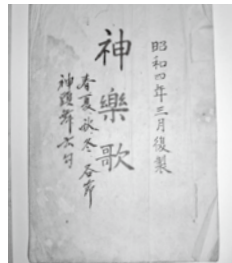 昭和四年三月復製
神樂歌
春夏秋冬各节
神躍舞六句